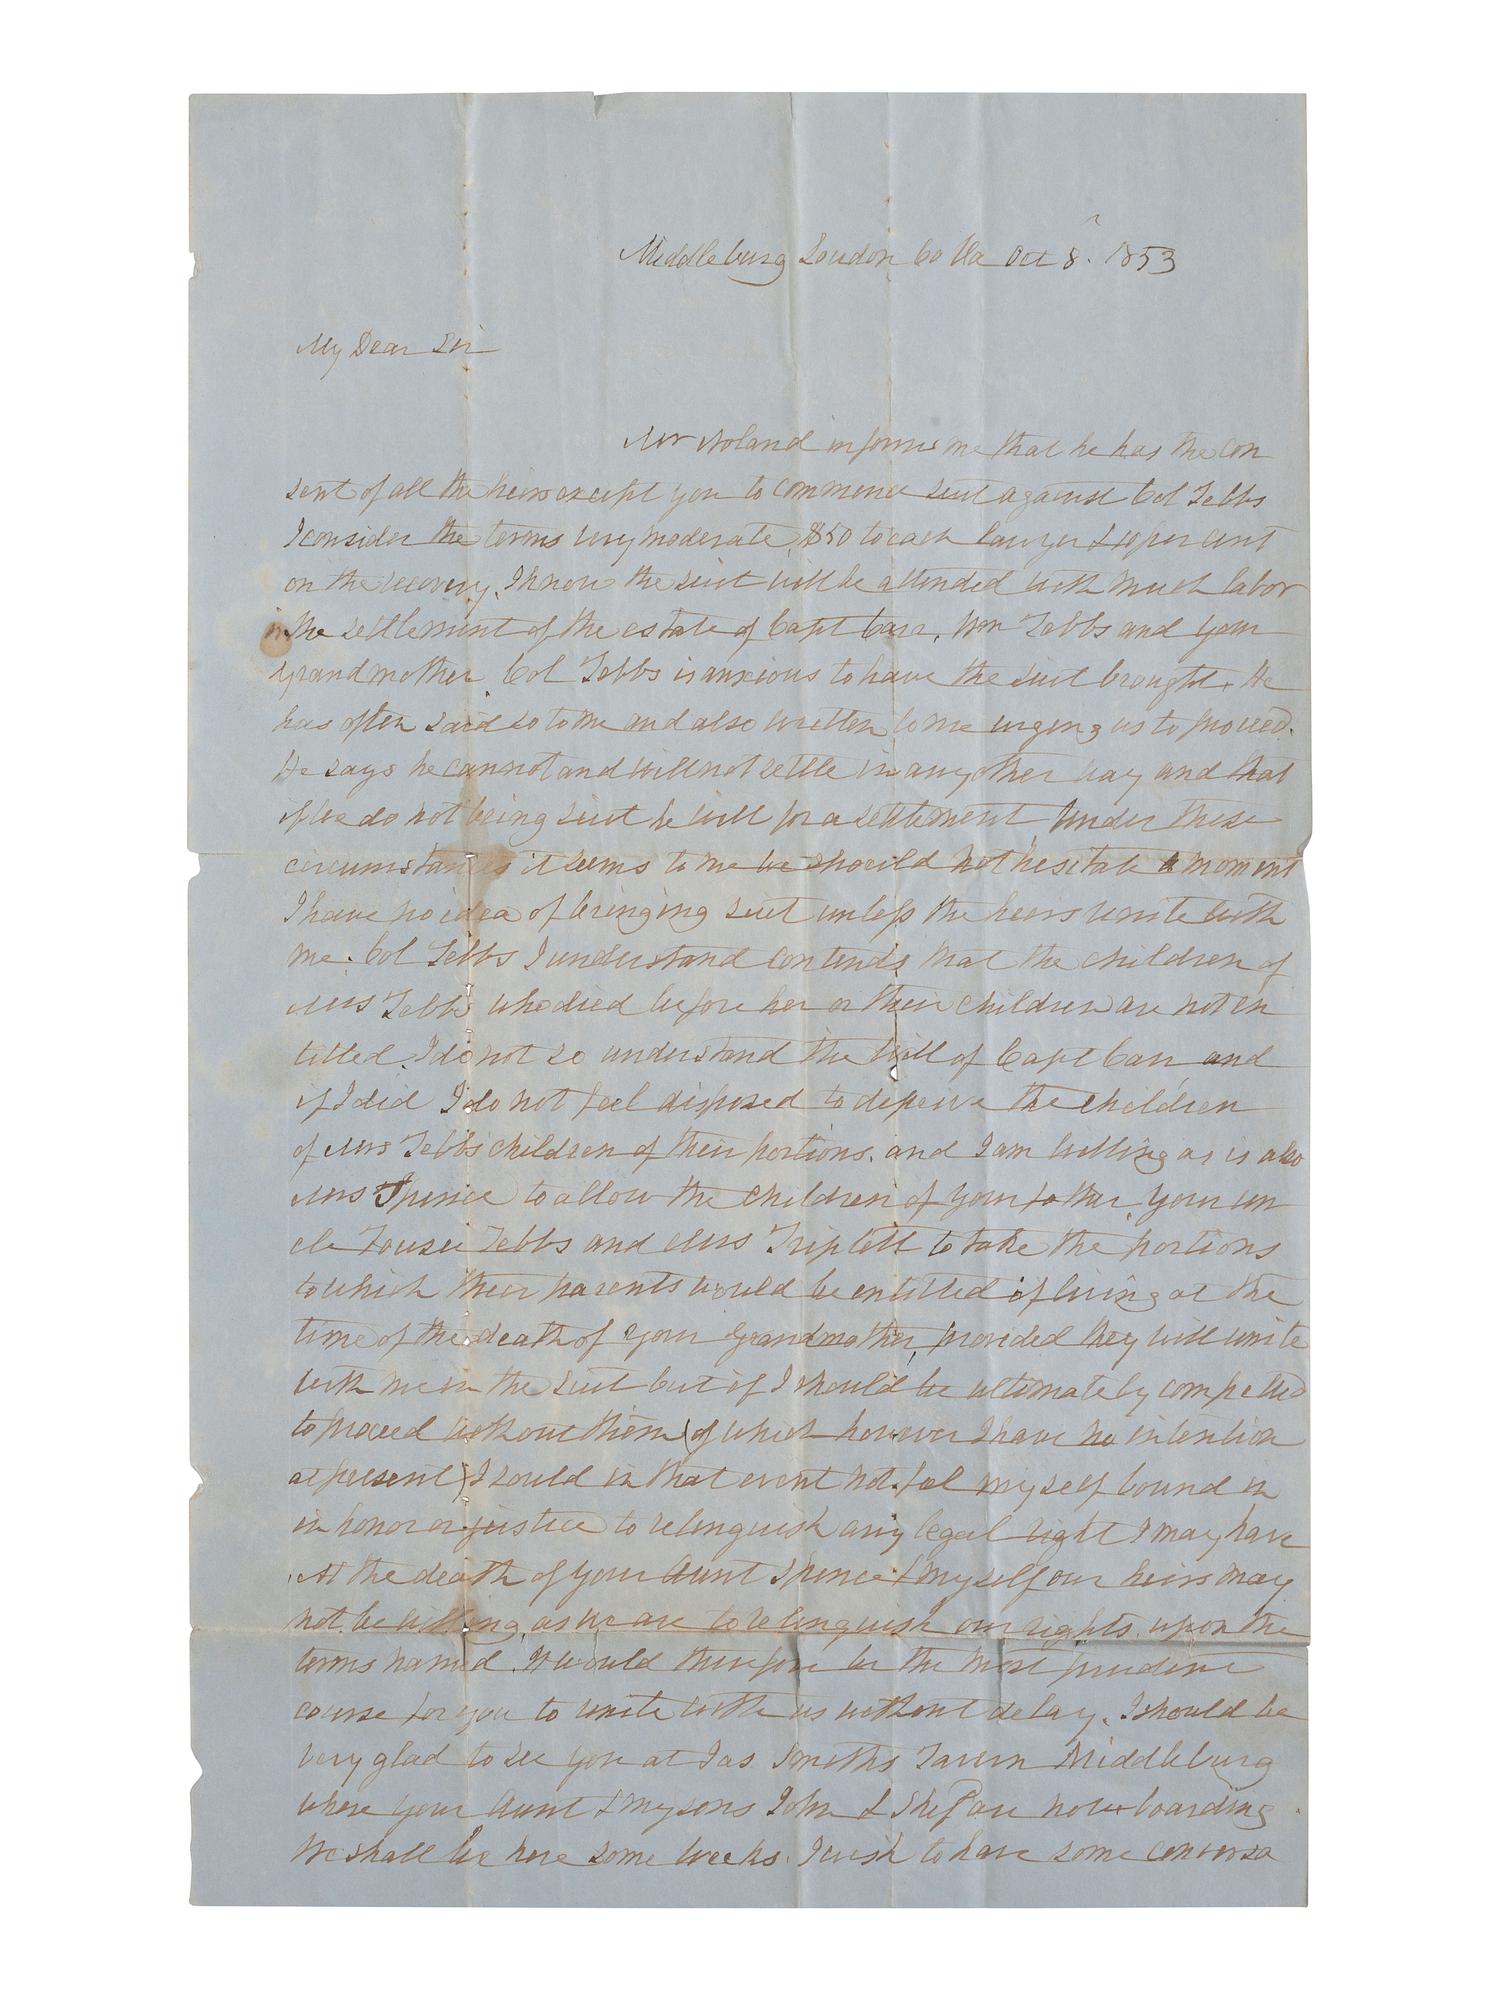 Middleburg Loudon Co Va Oct 8. 1853
My Dear Sir
Mr Noland informs me that he has the con
sent of all the heirs except you to commence suit against Col Tebbs
I consider the terms very moderate, $50 to each lawyer & 10 per cent
on the recovery. I know the suit will be attended with much labor
in the settlement of the estate of Capt Carr, Wm Tebbs and your
grandmother. Col Tebbs is anxious to have the suit brought. He
has often said so to me and also written to me urging us to proceed.
He says he cannot and will not settle in any other way and that
if we do not bring suit he will for a settlement. Under these
circumstances it seems to me we should not hesitate a moment
I have no idea of bringing suit unless the heirs unite with
me. Col Tebbs I understand contends that the children of
Mrs Tebbs who died before her or their children are not en
titled. I do not so understand the will of Capt Carr and
if I did I do not feel disposed to deprive the children
of Mrs Tebbs children of their portions. and I am willing as is also
Mrs Spence to allow the children of your father, your un
cle Foushee Tebbs and Mrs Triplett to take the portions
to which their parents would be entitled if living at the
time of the death of your grandmother, provided they will unite
with me in the suit but if I should be ultimately compelled
to proceed without them (of which however I have no intention
at present) I would in that event not feel myself bound in
in honor or justice to relinquish any legal right I may have
At the death of your Aunt Spence & myself our heirs may
not be willing, as we are to relinquish our rights upon the
terms named. It would therefore be the most prudent
course for you to unite with us without delay. I should be
very glad to see you at Jas Smiths Tavern Middleburg
where your Aunt & my sons John & are now boarding
We shall be here some weeks. I wish to have some conversa